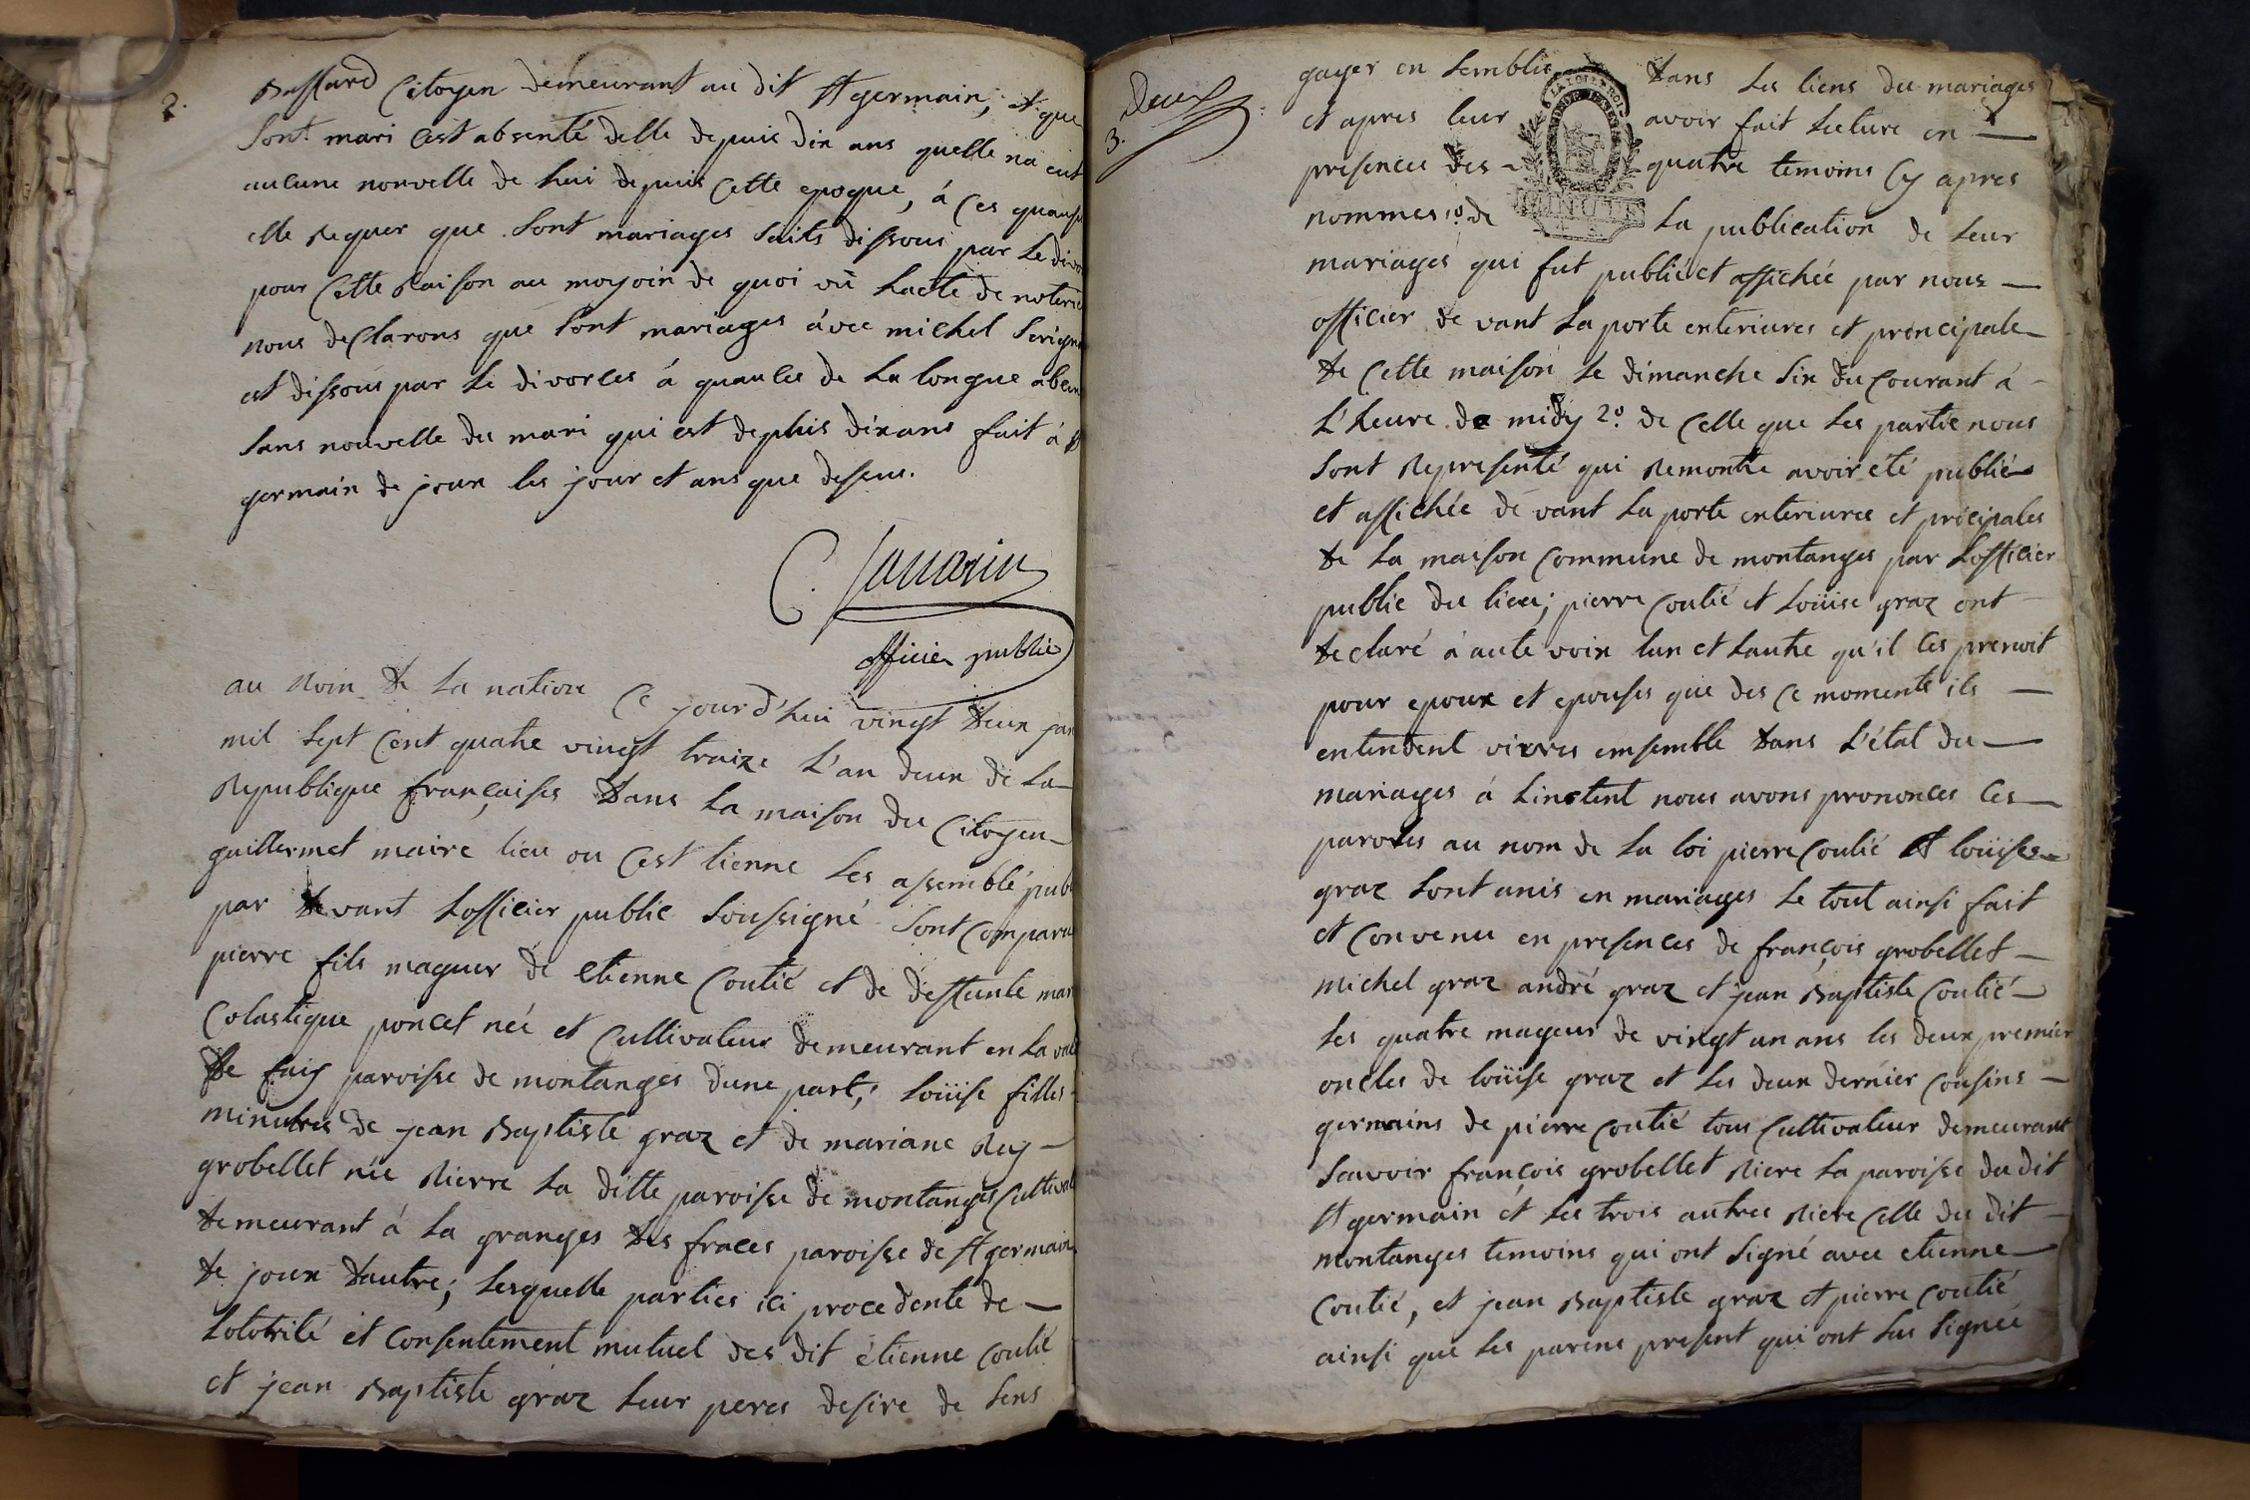 2.
Bastard Citoyen demeurant au dit St germain; et que
Sont mari C'est absenté delle depuis dix ans quelle na eut
aucune nouvelle de lui depuis Cette epoque, á Ces
elle Requer que Sont mariages Soits dissous par Le
pour Cette Raison au moyoin de quoi vû Lacte de
nous deClarons que Sont mariages ávec michel
est dissous par Le divorces á quaules de La longue
Sans nouvelle du mari qui est dephis dix ans fait á
germain de joux les jour et ans que dessus.
C.
officier public
au Nom de La nation Ce jourd'hui vingt deux
mil Sept Cent quatre vingt traize L'an deux de La
Republique françaises dans La maison du Citoyen
guillermet maire lieu ou C'est tienne Les assemblé
par devant Lofficier public Soussigné Sont
pierre fils maguer de etienne Coutié et de deffunte
Colastique poncet née et Cultivateur demeurant en La
de faiy paroisse de montanges dune part; Loüise filles
minutres de jean Baptiste graz et de mariane Rey
grobellet née Rierre La ditte paroisse de montanges
demeurant á La granges des fraces paroisse de St germain
de joux dautre; Lesquelle parties ici procedente de
Lototrité et Consentement mutuel des dit étienne Coutié
et jean Baptiste graz Leur peres desire de Sens
Deux
3.
gager en Semblie dans Les liens du mariages
et apres leur avoir fait Lecture en
presences des quatre temoins Cy apres
nommes 1º. de La publication de Leur
mariages qui fut publié et affichée par nous
officier de vant La porte enterieures et principale
de Cette maison Le dimanche Six du Courant á
L'heure de midy 2º. de Celle que Les partie nous
Sont Representé qui Remontre avoir été publiés
et affichée de vant La porte enterieures et pricipales
de La maison Commune de montanges par Lofficier
public du lieu; pierre Coutié et Loüise graz ont
declaré á aute voix lun et Lautre qu'il Ces prenoit
pour epoux et epouses que des Ce momente ils
entendent vivres emsemble dans L'état du
mariages á Linstent nous avons prononces Ces
paroles au nom de La loi pierre Coutié et loüises
graz Sont unis en mariages Le tout ainsi fait
et Convenu en presences de françois grobellet
michel graz andré graz et jean Baptiste Coutié
Les quatre mageur de vingt un ans les deux premier
oncles de loüise graz et Les deux dernier Cousins
germains de pierre Coutié tous Cultivateur demeurant
Sauvoir françois grobellet Riere La paroisse du dit
St germain et Les trois autres Riere Celle du dit
montanges temoins qui ont Signé avec etienne
Coutié, et jean Baptiste graz et pierre Coutié
ainsi que Les parens present qui ont Sus Signée